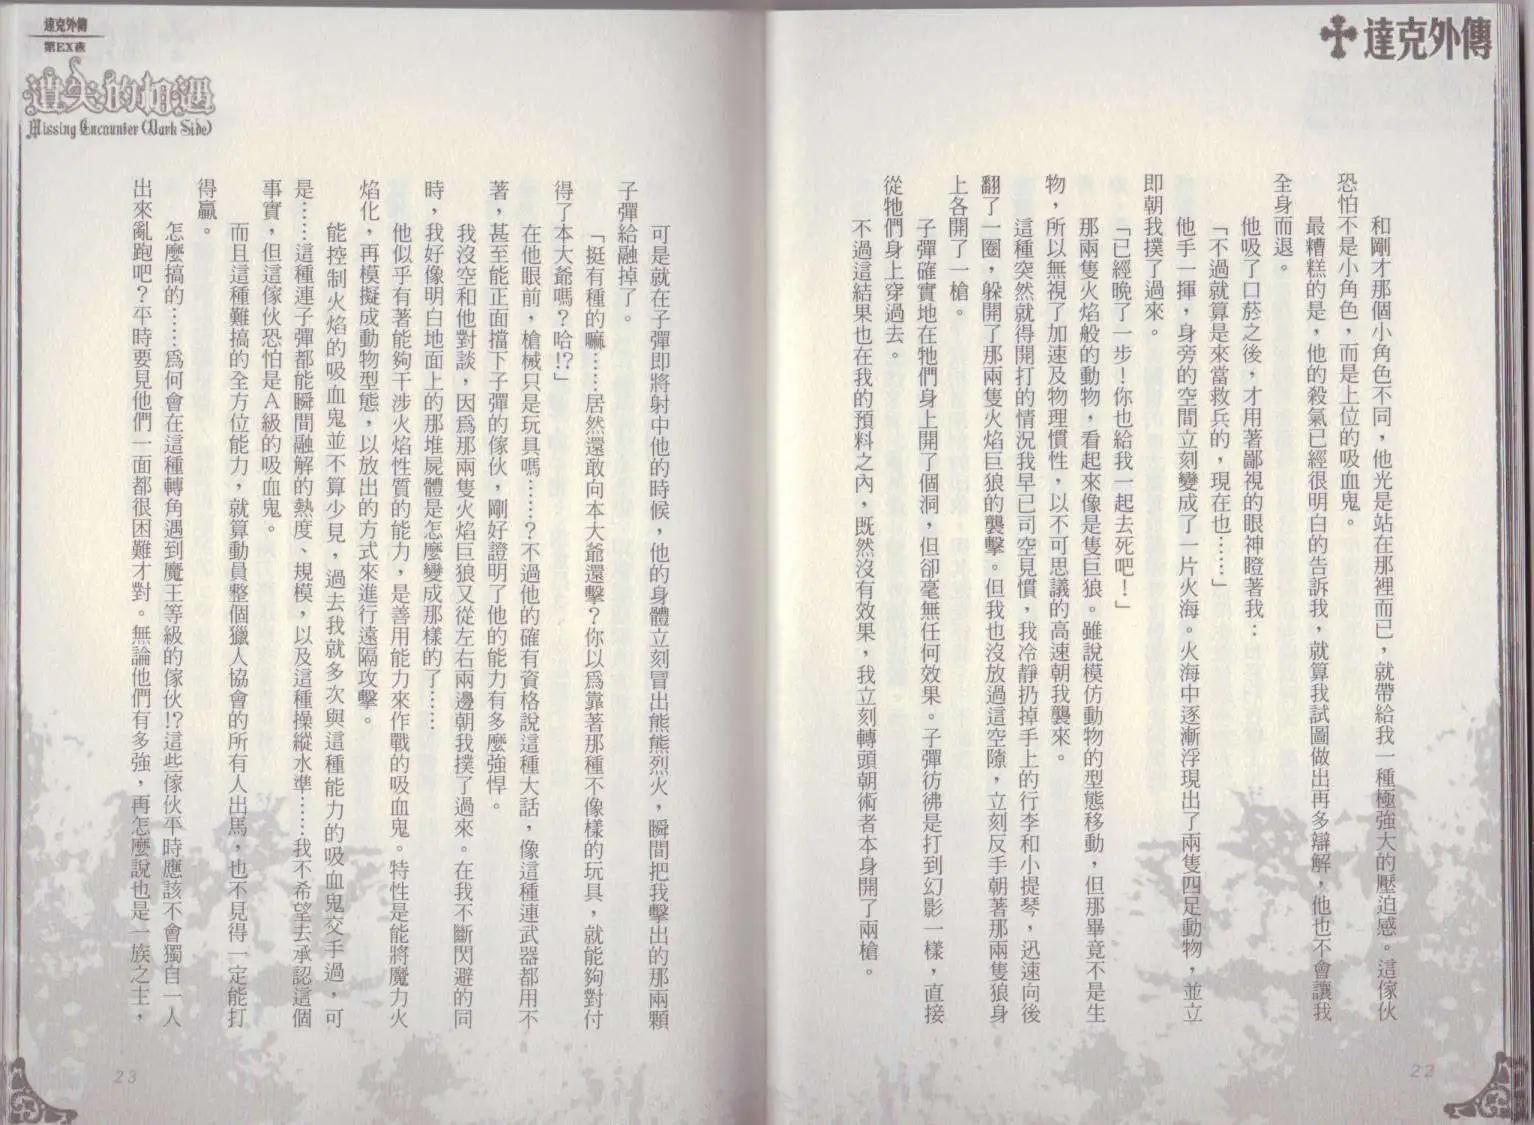 達克外傳
和剛才那個小角色不同，他光是站在那裡而已，就帶給我一種極強大的壓迫感。這傢伙
恐怕不是小角色，而是上位的吸血鬼。
最糟糕的是，他的殺氣已經很明白的告訴我，就算我試圖做出再多辯解，他也不會讓我
全身而退。
他吸了口菸之後，才用著鄙視的眼神瞪著我：
「不過就算是來當救兵的，現在也……」
他手一揮，身旁的空間立刻變成了一片火海。火海中逐漸浮現出了兩隻四足動物，並立
即朝我撲了過來。
「已經晚了一步！你也給我一起去死吧！」
那兩隻火焰般的動物，看起來像是隻巨狼。雖說模仿動物的型態移動，但那畢竟不是生
物，所以無視了加速及物理慣性，以不可思議的高速朝我襲來。
這種突然就得開打的情況我早已司空見慣，我冷靜扔掉手上的行李和小提琴，迅速向後
翻了一圈，躲開了那兩隻火焰巨狼的襲擊。但我也沒放過這空隙，立刻反手朝著那兩隻狼身
上各開了一槍。
子彈確實地在牠們身上開了個洞，但卻毫無任何效果。子彈彷彿是打到幻影一樣，直接
從牠們身上穿過去。
不過這結果也在我的預料之內，既然沒有效果，我立刻轉頭朝術者本身開了兩槍。
22
達克外傳
第EX夜
遺失的相遇
Missing Encounter (Dark Side)
可是就在子彈即將射中他的時候，他的身體立刻冒出熊熊烈火，瞬間把我擊出的那兩顆
子彈給融掉了。
「挺有種的嘛……居然還敢向本大爺還擊？你以為靠著那種不像樣的玩具，就能夠對付
得了本大爺嗎？哈!?」
在他眼前，槍械只是玩具嗎……？不過他的確有資格說這種大話，像這種連武器都用不
著，甚至能正面擋下子彈的傢伙，剛好證明了他的能力有多麼強悍。
我沒空和他對談，因為那兩隻火焰巨狼又從左右兩邊朝我撲了過來。在我不斷閃避的同
時，我好像明白地面上的那堆屍體是怎麼變成那樣的了……
他似乎有著能夠干涉火焰性質的能力，是善用能力來作戰的吸血鬼。特性是能將魔力火
焰化，再模擬成動物型態，以放出的方式來進行遠隔攻擊。
能控制火焰的吸血鬼並不算少見，過去我就多次與這種能力的吸血鬼交手過，可
是……這種連子彈都能瞬間融解的熱度、規模，以及這種操縱水準……我不希望去承認這個
事實，但這傢伙恐怕是Ａ級的吸血鬼。
而且這種難搞的全方位能力，就算動員整個獵人協會的所有人出馬，也不見得一定能打
得贏。
怎麼搞的……為何會在這種轉角遇到魔王等級的傢伙!?這些傢伙平時應該不會獨自一人
出來亂跑吧？平時要見他們一面都很困難才對。無論他們有多強，再怎麼說也是一族之主，
23